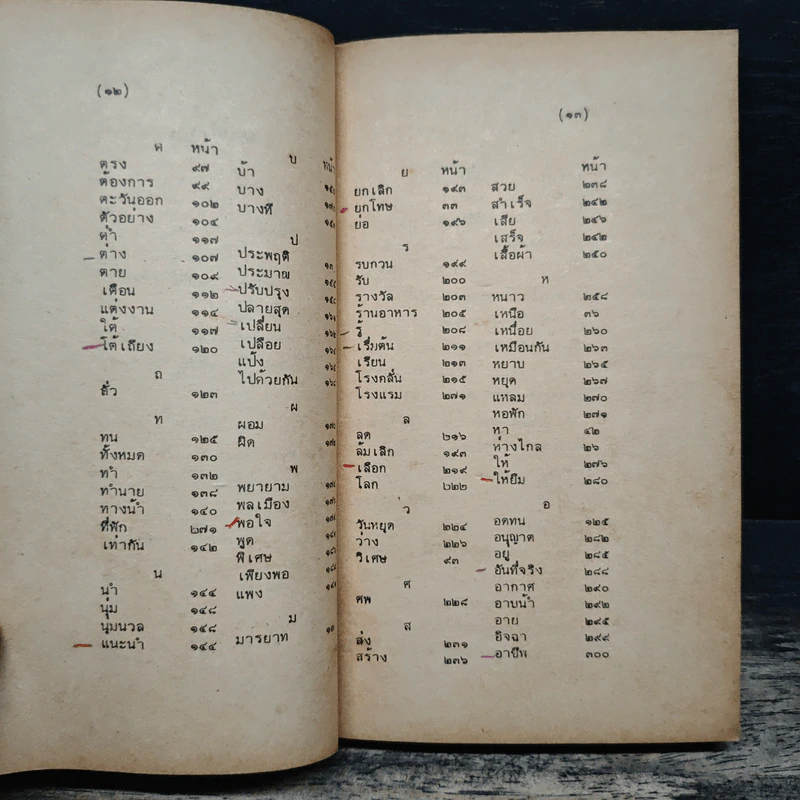 (๑๒)
ต หน้า
ตรง ๙๗
ต้องการ ๙๙
ตะวันออก ๑๐๒
ตัวอย่าง ๑๐๔
ต่ำ ๑๑๗
ต่าง ๑๐๗
ตาย ๑๐๙
เตือน ๑๑๒
แต่งงาน ๑๑๔
ใต้ ๑๑๗
โต้เถียง ๑๒๐
ถ
ถั่ว ๑๒๓
ท
ทน ๑๒๕
ทั้งหมด ๑๓๐
ทำ ๑๓๒
ทำนาย ๑๓๘
ทางน้ำ ๑๔๐
ที่พัก ๒๗๑
เท่ากัน ๑๔๒
น
นำ ๑๔๔
นุ่ม ๑๔๘
นุ่มนวล ๑๔๘
แนะนำ ๑๔๔
บ
บ้า
บาง
บางที
ป
ประพฤติ
ประมาณ
ปรับปรุง
ปลายสุด
เปลี่ยน
เปลือย
แป้ง
ไปด้วยกัน
ผ
ผอม
ผิด
พ
พยายาม
พลเมือง
พอใจ
พูด
พิเศษ
เพียงพอ
แพง
ม
มารยาท
(๑๓)
ย หน้า
ยกเลิก ๑๙๓
ยกโทษ ๓๓
ย่อ ๑๙๖
ร
รบกวน ๑๙๙
รับ ๒๐๐
รางวัล ๒๐๓
ร้านอาหาร ๒๐๕
รู้ ๒๐๘
เริ่มต้น ๒๑๑
เรียน ๒๑๓
โรงกลั่น ๒๑๕
โรงแรม ๒๗๑
ล
ลด ๒๑๖
ล้มเลิก ๑๙๓
เลือก ๒๑๙
โลก ๒๒๒
ว
วันหยุด ๒๒๔
ว่าง ๒๒๖
วิเศษ ๙๓
ศ
ศพ ๒๒๘
ส
ส่ง ๒๓๑
สร้าง ๒๓๖
หน้า
สวย ๒๓๘
สำเร็จ ๒๔๒
เสีย ๒๔๖
เสร็จ ๒๔๒
เสื้อผ้า ๒๕๐
ห
หนาว ๒๕๘
เหนือ ๓๖
เหนื่อย ๒๖๐
เหมือนกัน ๒๖๓
หยาบ ๒๖๕
หยุด ๒๖๗
แหลม ๒๗๐
หอพัก ๒๗๑
หา ๔๒
ห่างไกล ๒๖
ให้ ๒๗๖
ให้ยืม ๒๘๐
อ
อดทน ๑๒๕
อนุญาต ๒๘๒
อยู่ ๒๘๕
อันที่จริง ๒๘๘
อากาศ ๒๙๐
อาบน้ำ ๒๙๒
อาย ๒๙๕
อิจฉา ๒๙๙
อาชีพ ๓๐๐